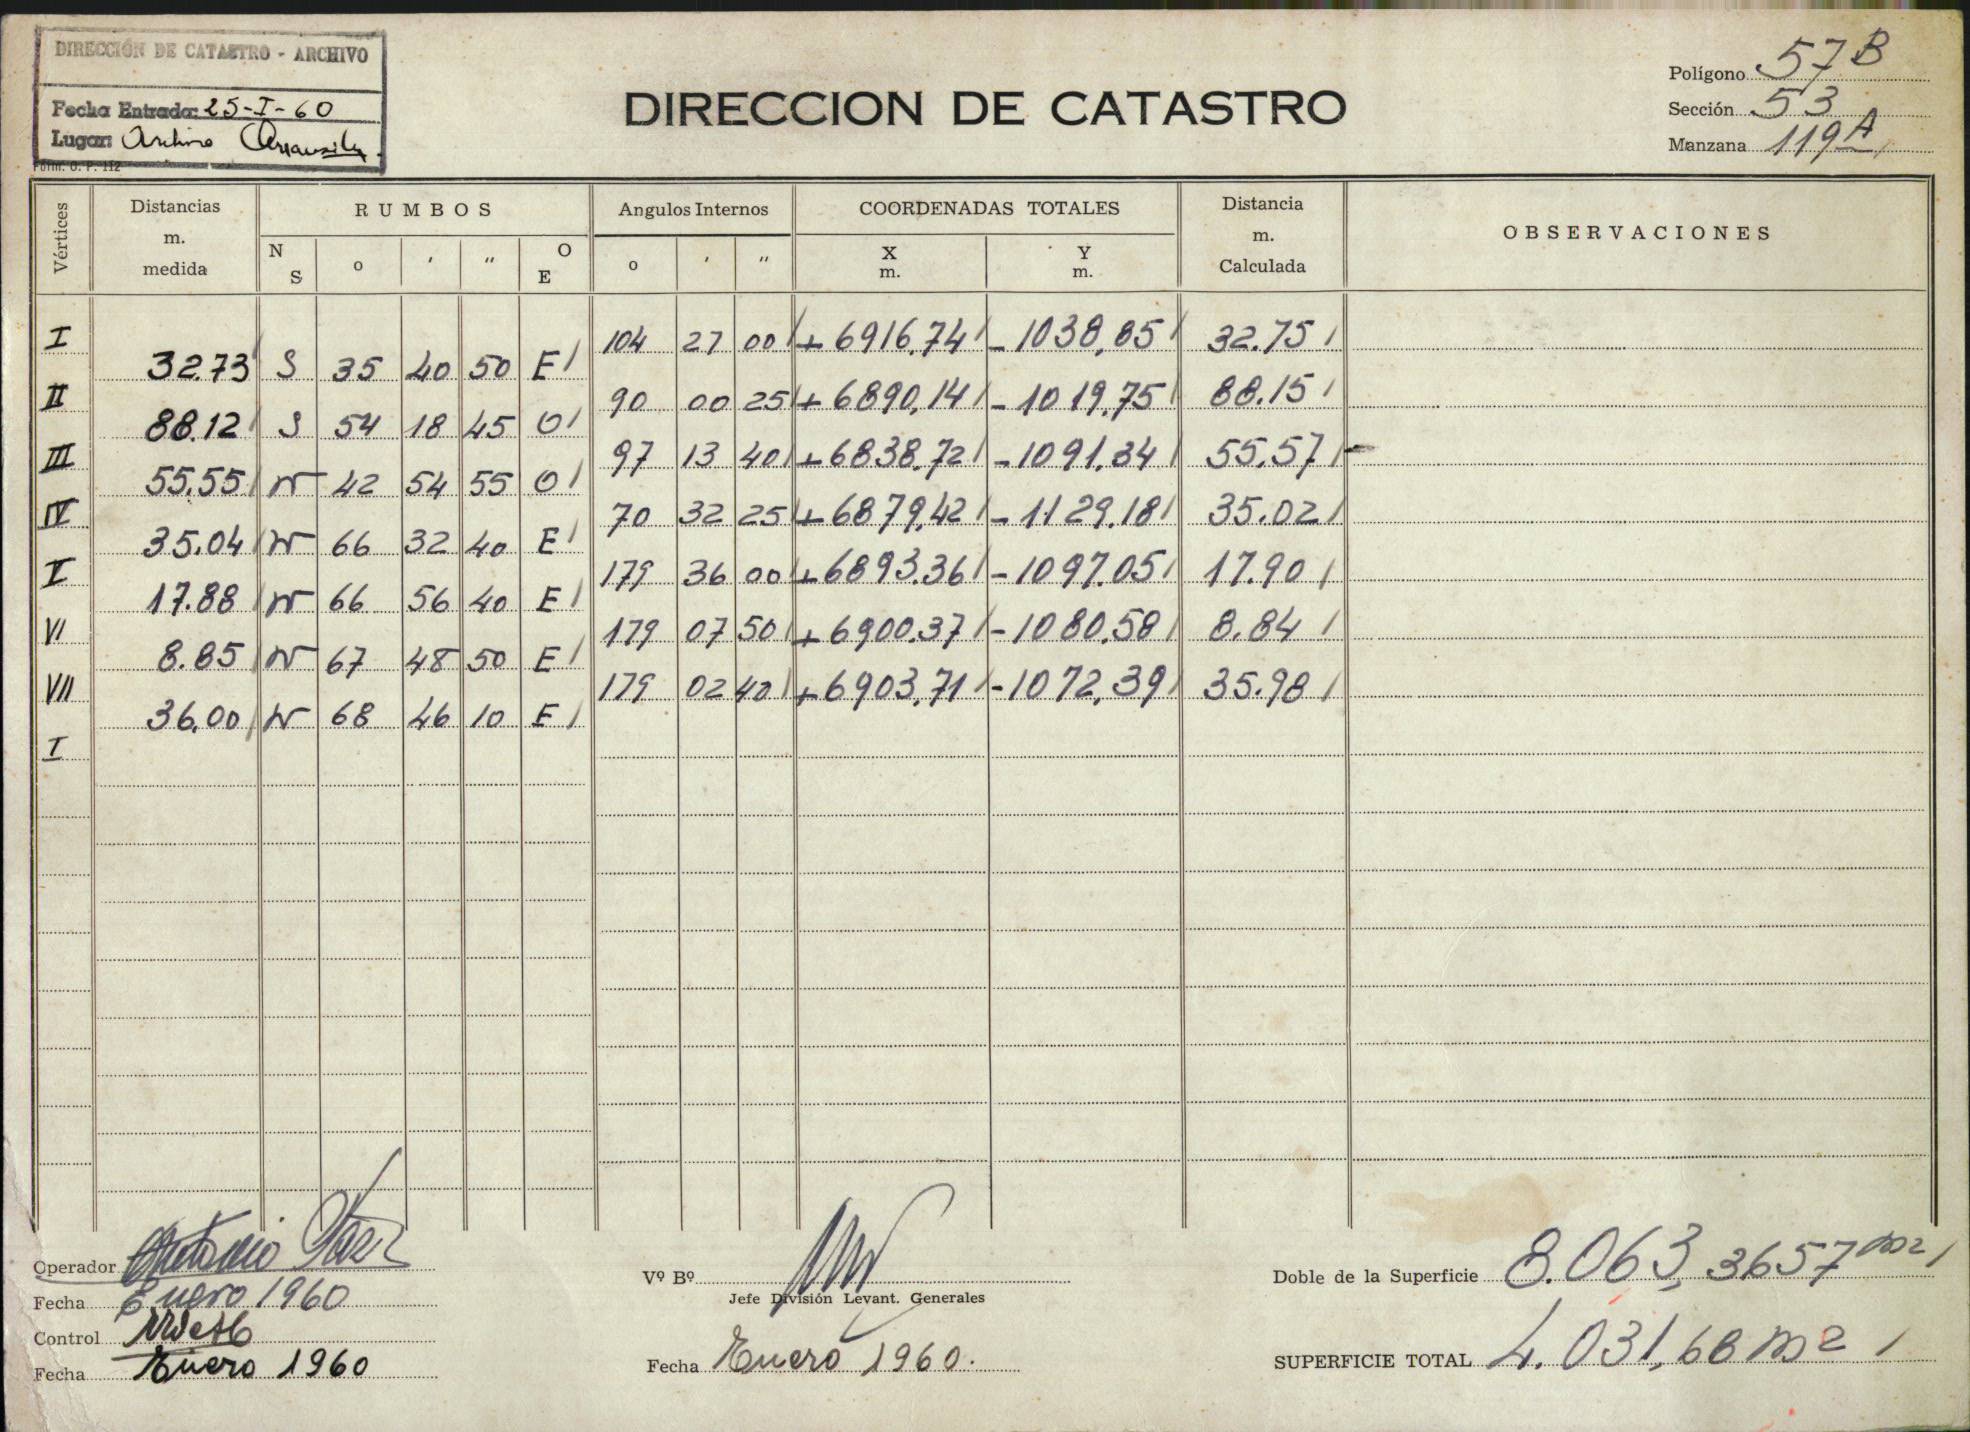 DIRECCIÓN DE CATASTRO - ARCHIVO
Fecha Entrada: 25-I-60
Lugar: Archivo
Form. O. P. 112
DIRECCION DE CATASTRO
Polígono 57 B
Sección 53
Manzana 119 A
Vértices
Distancias m. medida
RUMBOS
N S o ' " O E
Angulos Internos
o ' "
COORDENADAS TOTALES
X m. Y m.
Distancia m. Calculada
OBSERVACIONES
I 104 27 00 + 6916,74 - 1038,85 32.75
32.73 S 35 40 50 E
II 90 00 25 + 6890,14 - 1019,75 88.15
88.12 S 54 18 45 O
III 97 13 40 + 6838,72 - 1091,34 55,57
55.55 N 42 54 55 O
IV 70 32 25 + 6879,42 - 1129,18 35.02
35.04 N 66 32 40 E
V 179 36 00 + 6893,36 - 1097,05 17.90
17.88 N 66 56 40 E
VI 179 07 50 + 6900,37 - 1080,58 8.84
8.85 N 67 48 50 E
VII 179 02 40 + 6903,71 - 1072,39 35.98
36.00 N 68 46 10 E
I
Operador Antonio
Fecha Enero 1960
Control
Fecha Enero 1960
Vº Bº
Jefe División Levant. Generales
Fecha Enero 1960.
Doble de la Superficie 8.063,3657 m2
SUPERFICIE TOTAL 4.031,68 m2